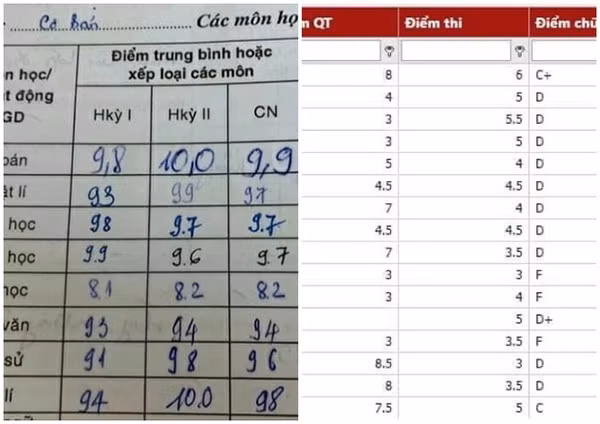 Cơ bản Các môn họ
n học/ Điểm trung bình hoặc
t động xếp loại các môn
GD Hkỳ I Hkỳ II CN
oán 9,8 10,0 9,9
ật lí 93 99 97
học 98 9.7 9.7
học 9.9 9.6 9.7
học 8.1 8.2 8.2
văn 93 94 94
sử 91 98 96
lí 94 10.0 98
m QT Điểm thi Điểm chữ
8 6 C+
4 5 D
3 5.5 D
3 5 D
5 4 D
4.5 4.5 D
7 4 D
4.5 4.5 D
7 3.5 D
3 3 F
3 4 F
5 D+
3 3.5 F
8.5 3 D
8 3.5 D
7.5 5 C